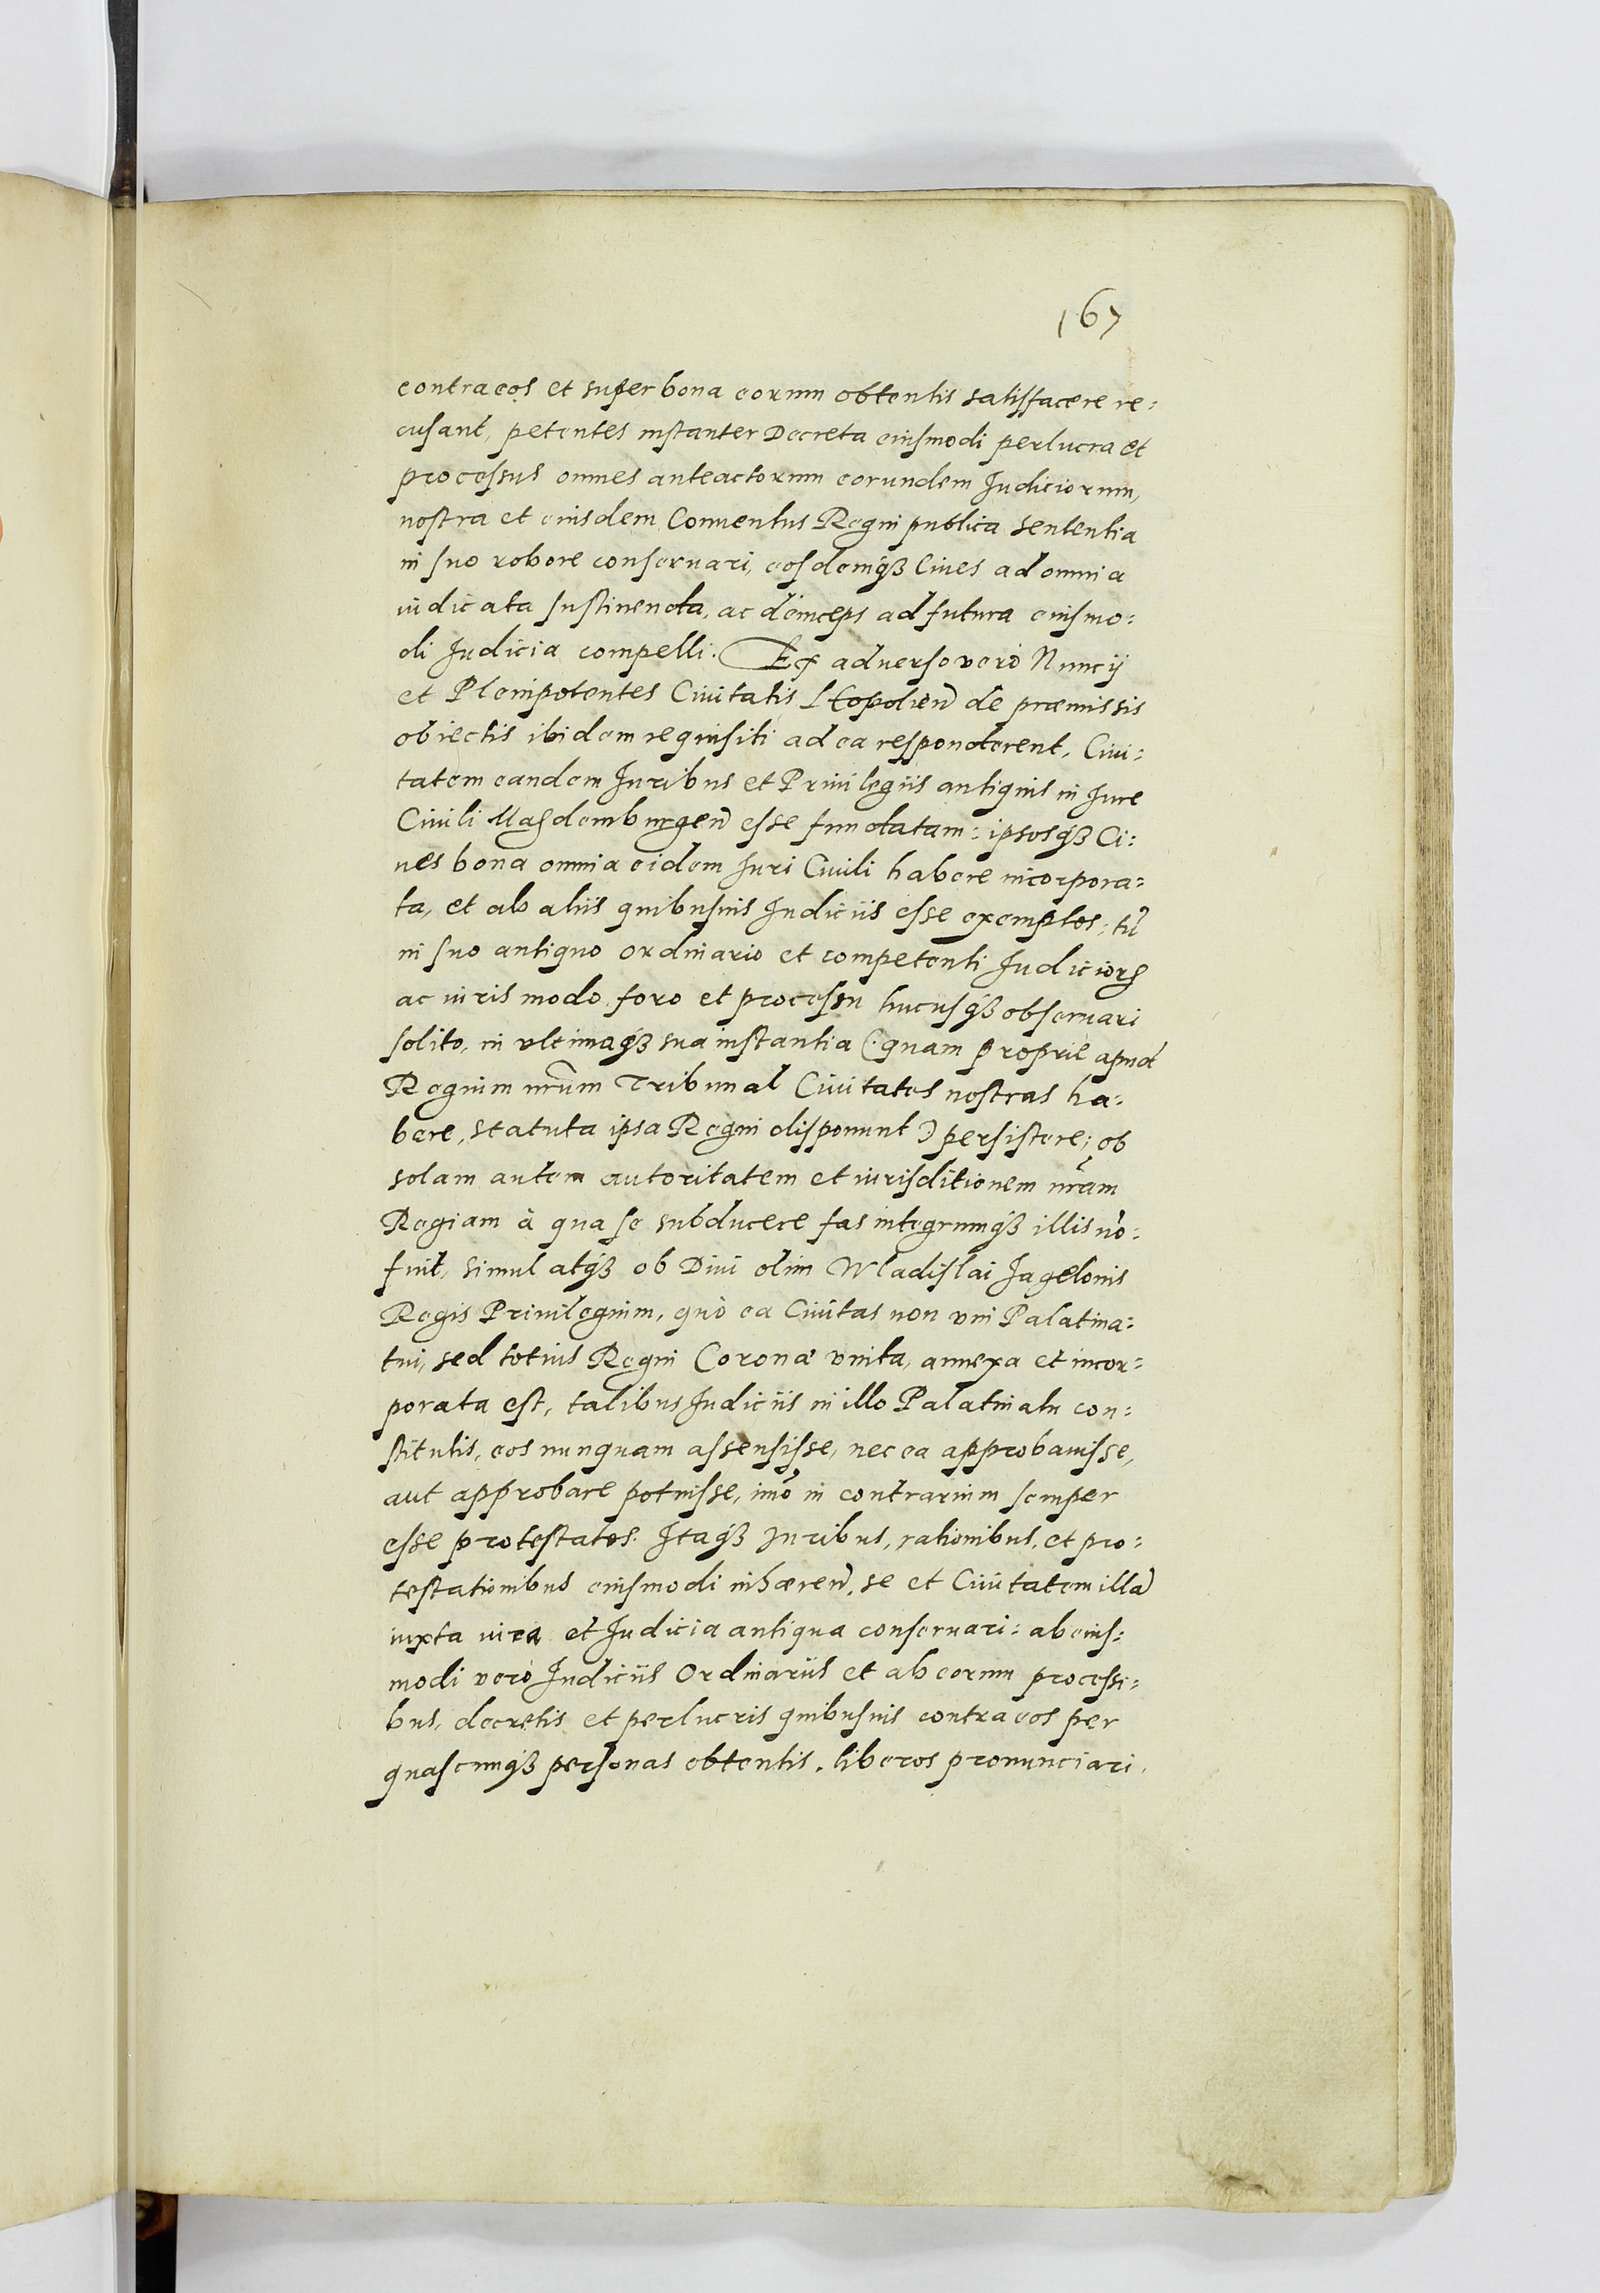 167
contra eos et super bona eorum obtentis satisfacere re:
cusant, petentes instanter Decreta eiusmodi perlucra et
processus omnes anteactorum eorundem Judiciorum,
nostra et eiusdem Conuentus Regni publica sententia
in suo robore conseruari, eosdemq́ꝫ Ciues ad omnia
iudicata sustinenda, ac deinceps ad futura eiusmo:
di Judicia compelli. Ex aduerso verò Nuncij
et Plenipotentes Ciuitatis Leopolien̄ de præmissis
obiectis ibidem requisiti ad ea responderent, Ciui:
tatem eandem Juribus et Priuilegiis antiquis in Jure
Ciuili Magdemburgen̄ esse fundatam: ipsosq́ꝫ Ci:
ues bona omnia eidem Juri Ciuili habere incorpora:
ta, et ab aliis quibusuis Judiciis esse exemptos; tū
in suo antiquo ordinario et competenti Judiciorꝫ
ac iuris modo, foro et processu hucusq́ꝫ obseruari
solito, in vltimaq́ꝫ sua instantia (: quam proprie apud
Regium nr̄um Tribunal Ciuitates nostras ha:
bere, statuta ipsa Regni disponunt :) persistere; ob
solam autem autoritatem et iurisditionem nr̄am
Regiam à qua se subducere fas integrumq́ꝫ illis nō:
fuit, simul atq́ꝫ ob Diui olim Wladislai Jagelonis
Regis Priuilegium, quò ea Ciuitas non vni Palatina:
tui, sed totius Regni Coronæ vnita, annexa et incor:
porata est, talibus Judiciis in illo Palatinatu con:
stitutis, eos nunquam assensisse, nec ea approbauisse,
aut approbare potuisse, imò in contrarium semper
esse protestatos. Itaq́ꝫ Juribus, rationibus, et pro:
testationibus eiusmodi inhæren̄, se et Ciuitatem illā
iuxta iura et Judicia antiqua conseruari: ab eius:
modi verò Judiciis Ordinariis et ab eorum processi:
bus, decretis et perlucris quibusuis contra eos per
quascunq́ꝫ personas obtentis, liberos pronunciari.